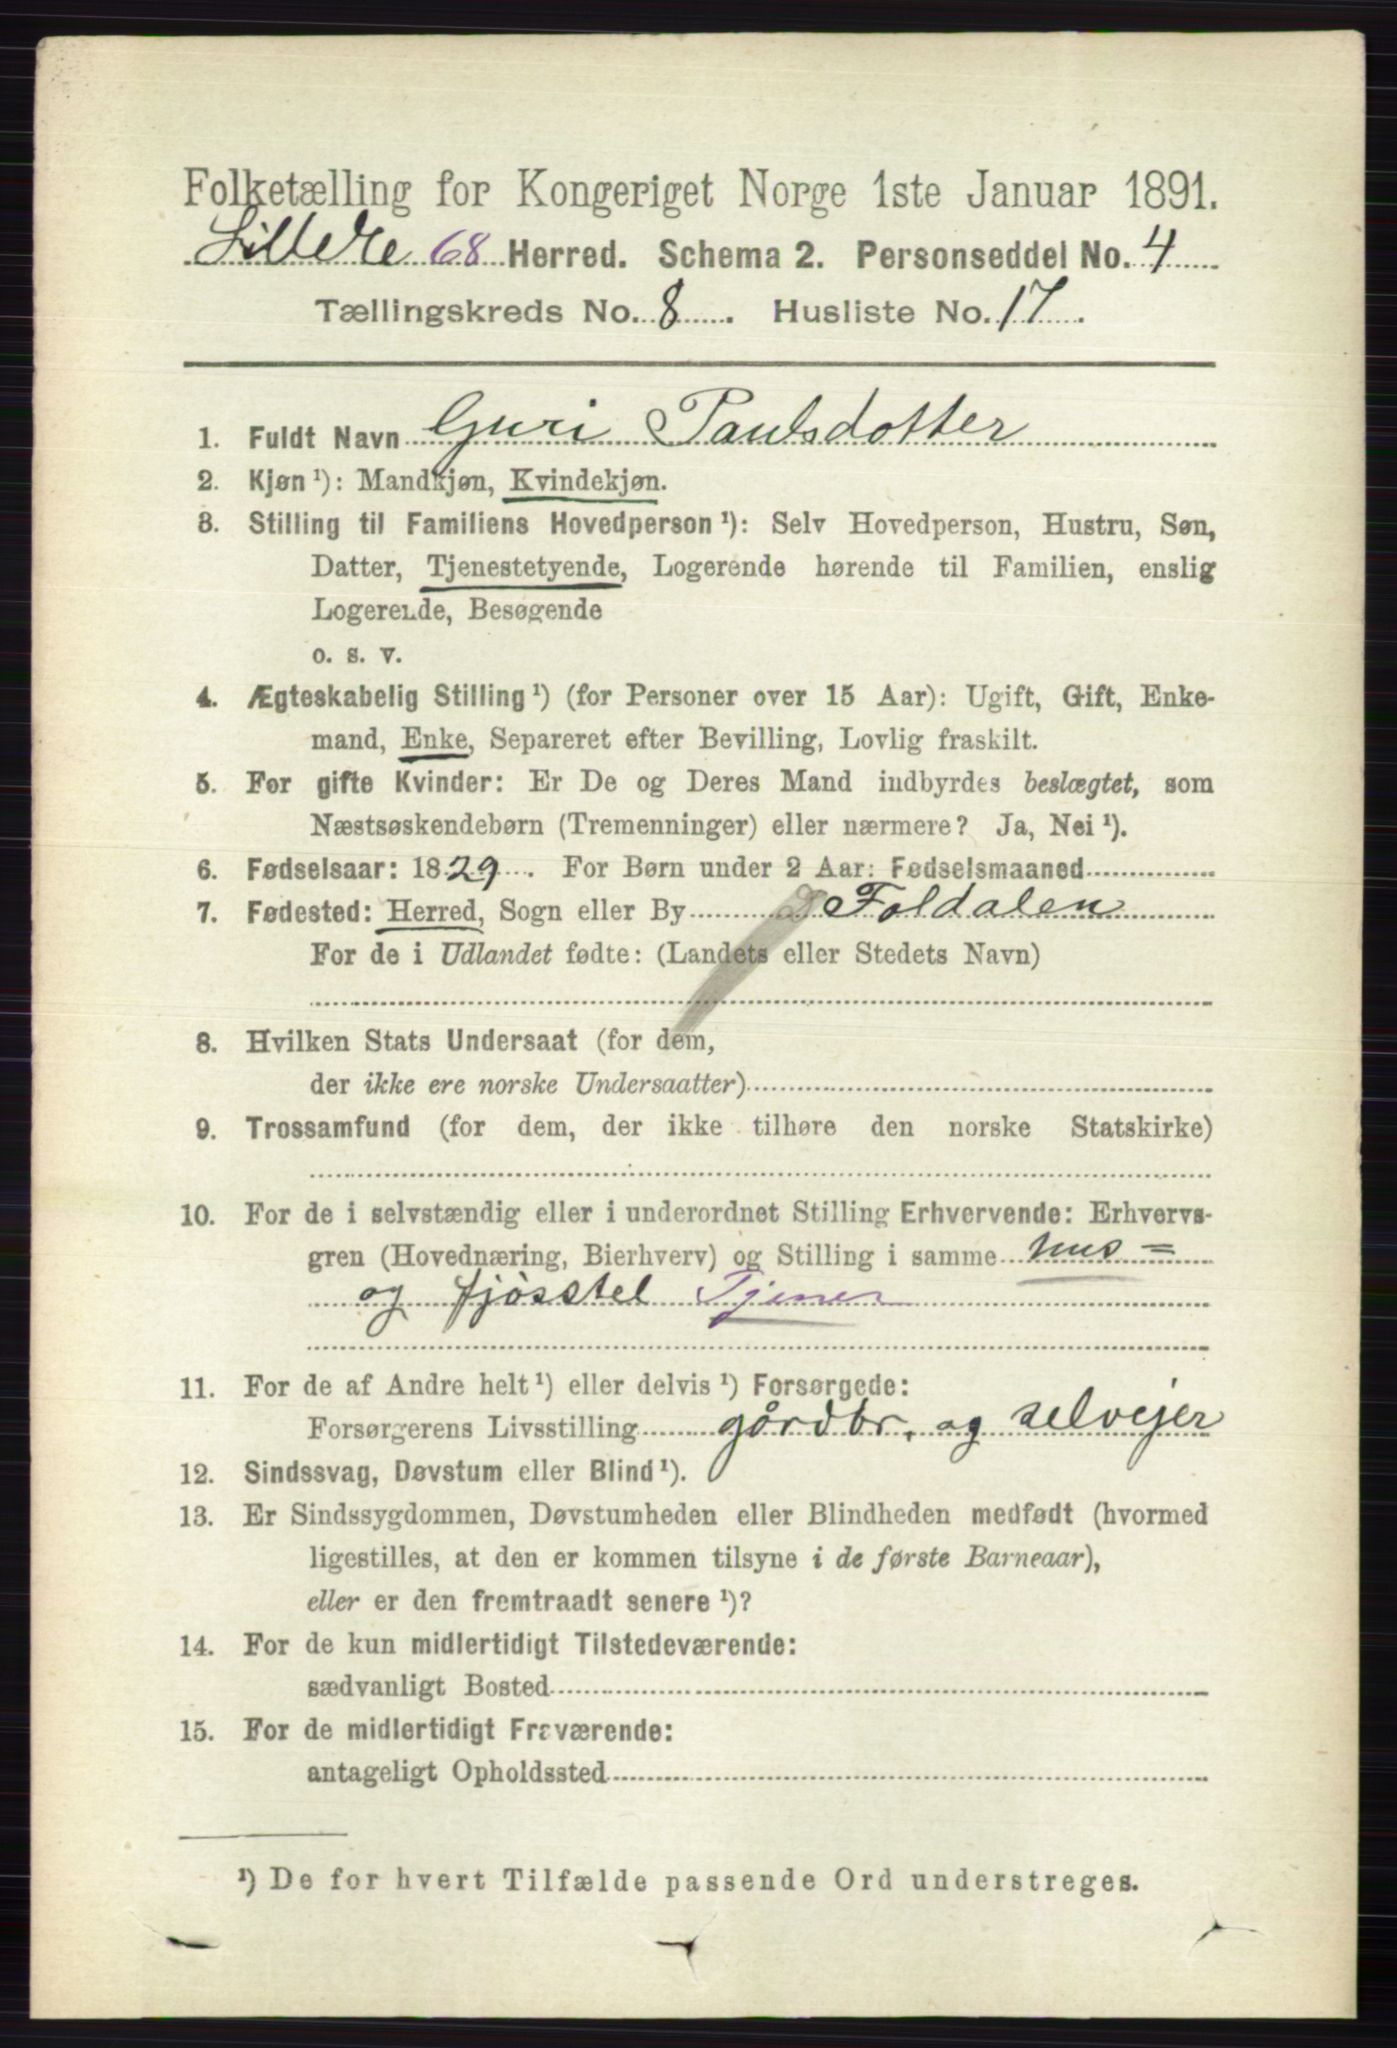 Folketælling for Kongeriget Norge 1ste Januar 1891.
Lilleelve 68 Herred. Schema 2. Personseddel No. 4
Tællingskreds No. 8. Husliste No. 17.
1. Fuldt Navn Guri Paulsdotter
2. Kjøn ¹): Mandkjøn, Kvindekjøn.
3. Stilling til Familiens Hovedperson ¹): Selv Hovedperson, Hustru, Søn,
Datter, Tjenestetyende, Logerende hørende til Familien, enslig
Logerende, Besøgende
o. s. v.
4. Ægteskabelig Stilling ¹) (for Personer over 15 Aar): Ugift, Gift, Enke-
mand, Enke, Separeret efter Bevilling, Lovlig fraskilt.
5. For gifte Kvinder: Er De og Deres Mand indbyrdes beslægtet, som
Næstsøskendebørn (Tremenninger) eller nærmere? Ja, Nei ¹).
6. Fødselsaar: 1829. For Børn under 2 Aar: Fødselsmaaned
7. Fødested: Herred, Sogn eller By Foldalen
For de i Udlandet fødte: (Landets eller Stedets Navn)
8. Hvilken Stats Undersaat (for dem,
der ikke ere norske Undersaatter)
9. Trossamfund (for dem, der ikke tilhøre den norske Statskirke)
10. For de i selvstændig eller i underordnet Stilling Erhvervende: Erhvervs-
gren (Hovednæring, Bierhverv) og Stilling i samme hus=
og fjösstel Tjener
11. For de af Andre helt ¹) eller delvis ¹) Forsørgede:
Forsørgerens Livsstilling gårdbr. og selvejer
12. Sindssvag, Døvstum eller Blind ¹).
13. Er Sindssygdommen, Døvstumheden eller Blindheden medfødt (hvormed
ligestilles, at den er kommen tilsyne i de første Barneaar),
eller er den fremtraadt senere ¹)?
14. For de kun midlertidigt Tilstedeværende:
sædvanligt Bosted
15. For de midlertidigt Fraværende:
antageligt Opholdssted
¹) De for hvert Tilfælde passende Ord understreges.